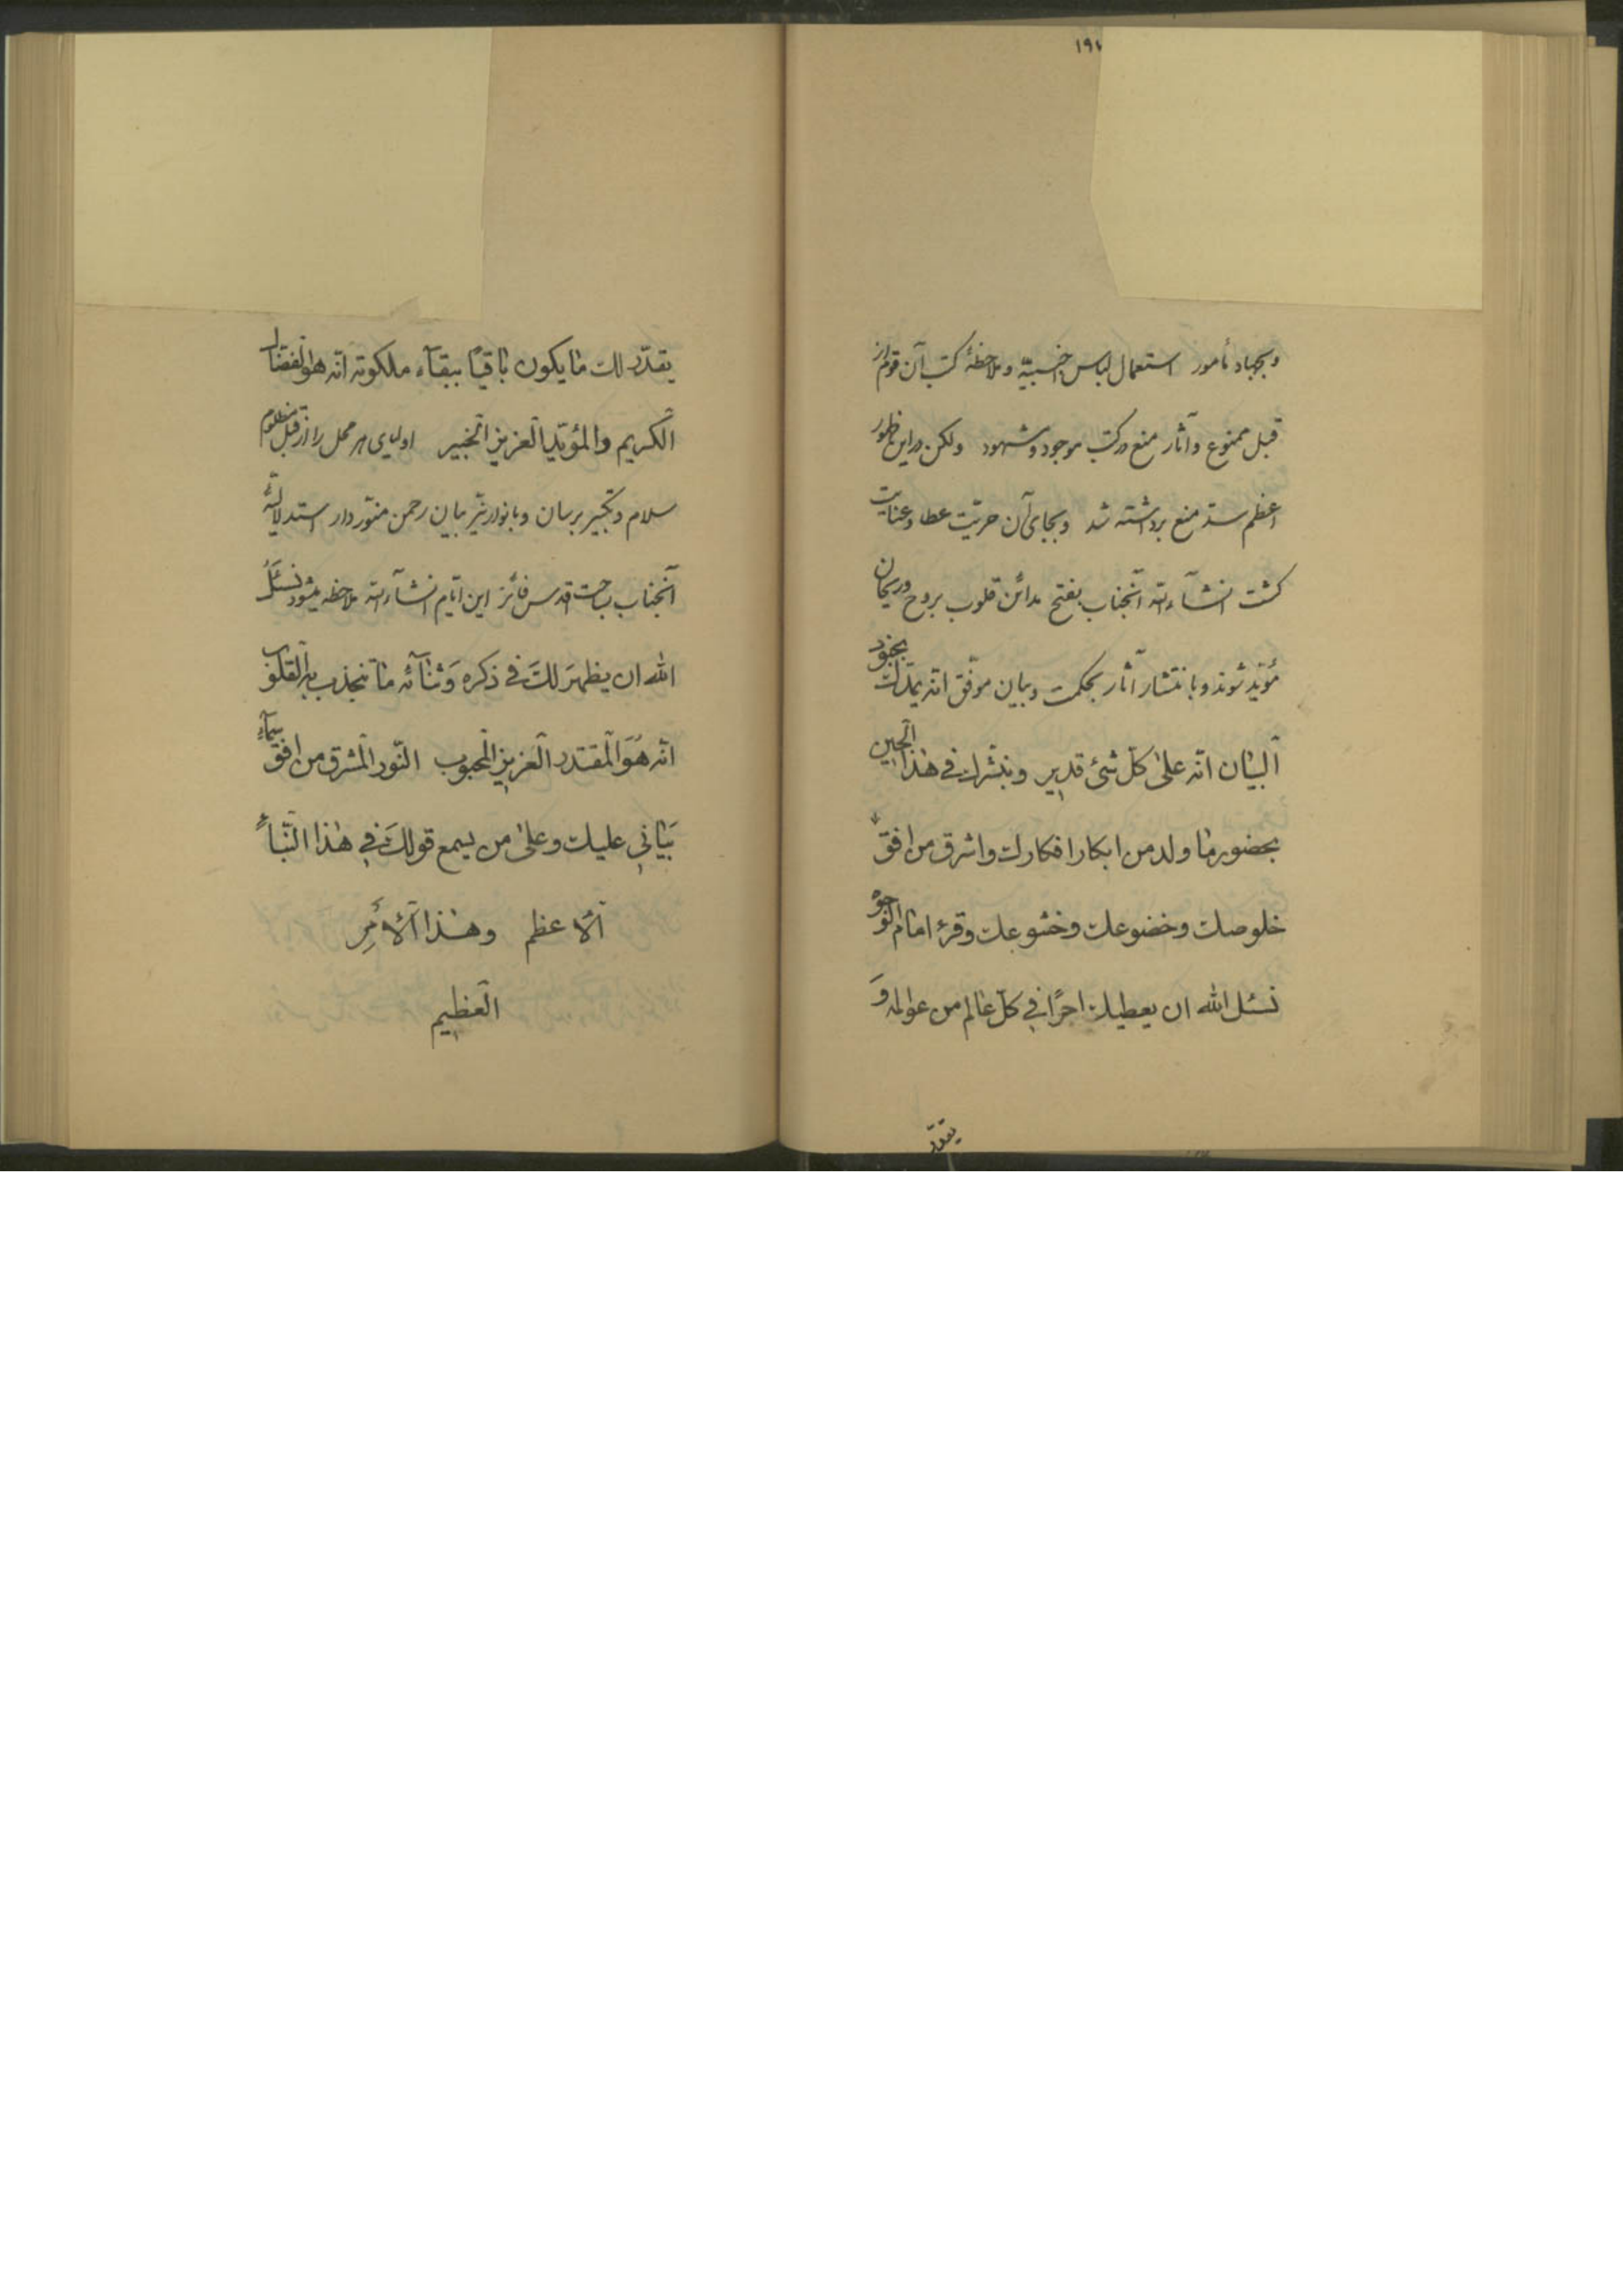 ۱۹۱
و بجهاد مأمور استعمال لباس اجنبیّه و ملاحظهٔ کتب آن قوم از
قبل ممنوع و آثار منع در کتب موجود و مشهود ولکن در این ظهور
اعظم سدّ منع برداشته شد و بجای آن حریّت عطا و عنایت
گشت انشآءالله آنجناب بفتح مدائن قلوب بروح و ریحان
مؤیّد شوند و بانتشار آثار بحکمت و بیان موفّق انّه یمدّک بجنود
البیان انّه علی کلّ شیئ قدیر و نبشّرک فی هذا الحین
بحضور ما ولد من ابکار افکارک و اشرق من افق
خلوصک و خضوعک و خشوعک و قرء امام الوجوه
نسئل الله ان یعطیک اجرًا فی کلّ عالم من عوالمه وَ
یقدّر
یقدّر لک ما یکون باقیًا ببقآء ملکوته انّه هو الفضّال
الکریم والمؤیّد العزیز الخبیر اولیای هر محل را از قبل مظلوم
سلام و تکبیر برسان و بانوار نیّر بیان رحمن منوّر دار استدلالیّهٔ
آنجناب بساحت اقدس فائز این ایّام انشآءالله ملاحظه میشود نسئل
الله ان یظهر لکَ فی ذکره وَ ثنآئه ما تنجذب به القلوب
انّه هُوَ المقتدر العزیز المحبوب النّور المشرق من افق سمآء
بَیانی علیک و علی من یسمع قولکَ فی هٰذا النّباءِ
الأعظم و هٰذا الأمرِ
العظیم